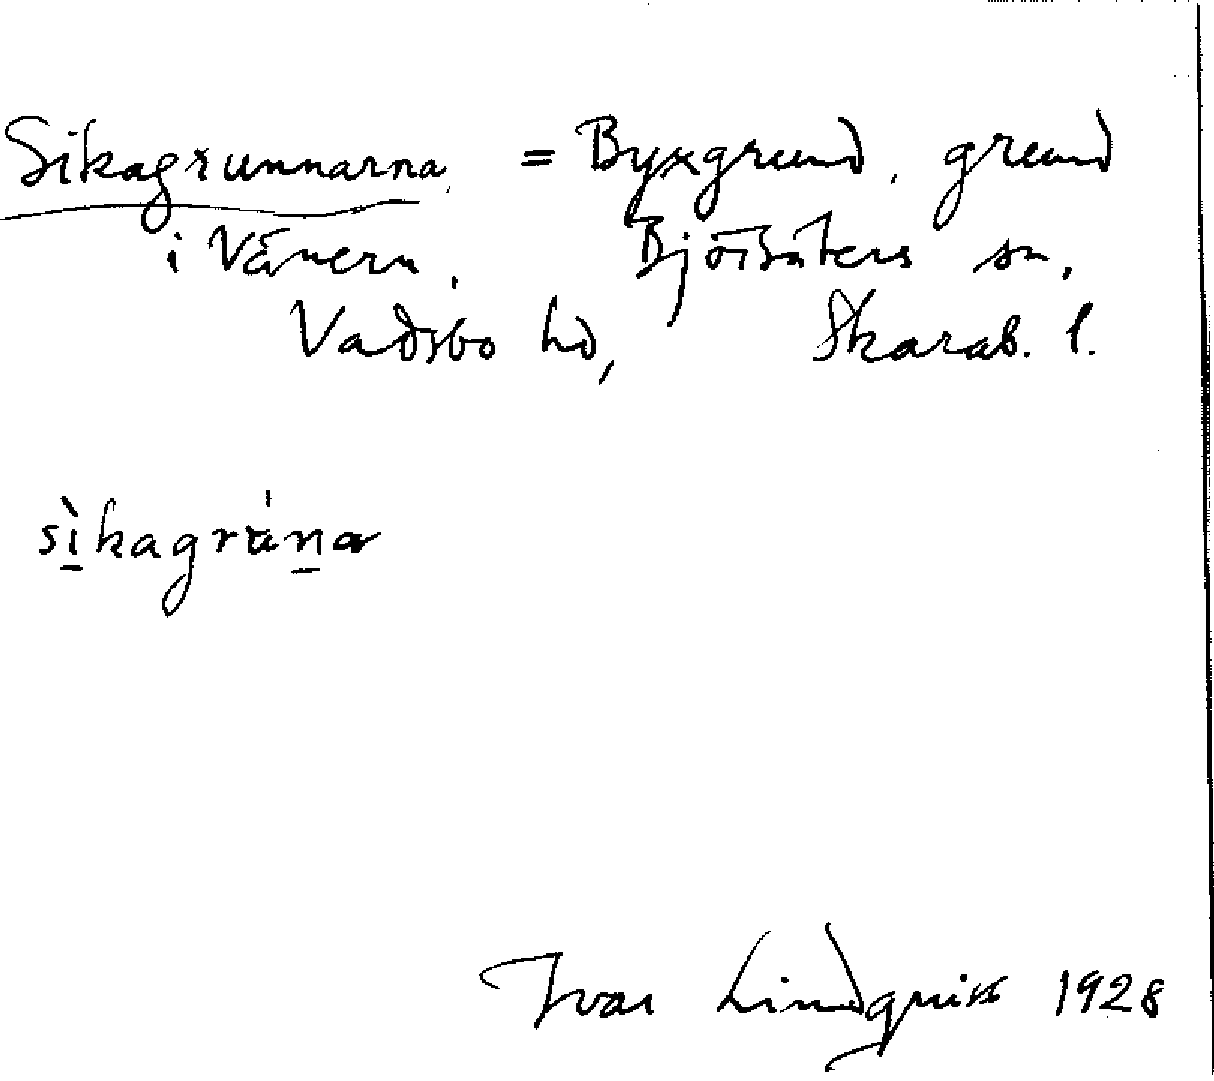 Sikagrunnarna = Byxgrund, grund
i Vänern. Björsäters sn,
Vadsbo hd, Skarab. l.
sìkagrúna
Ivar Lindquist 1928